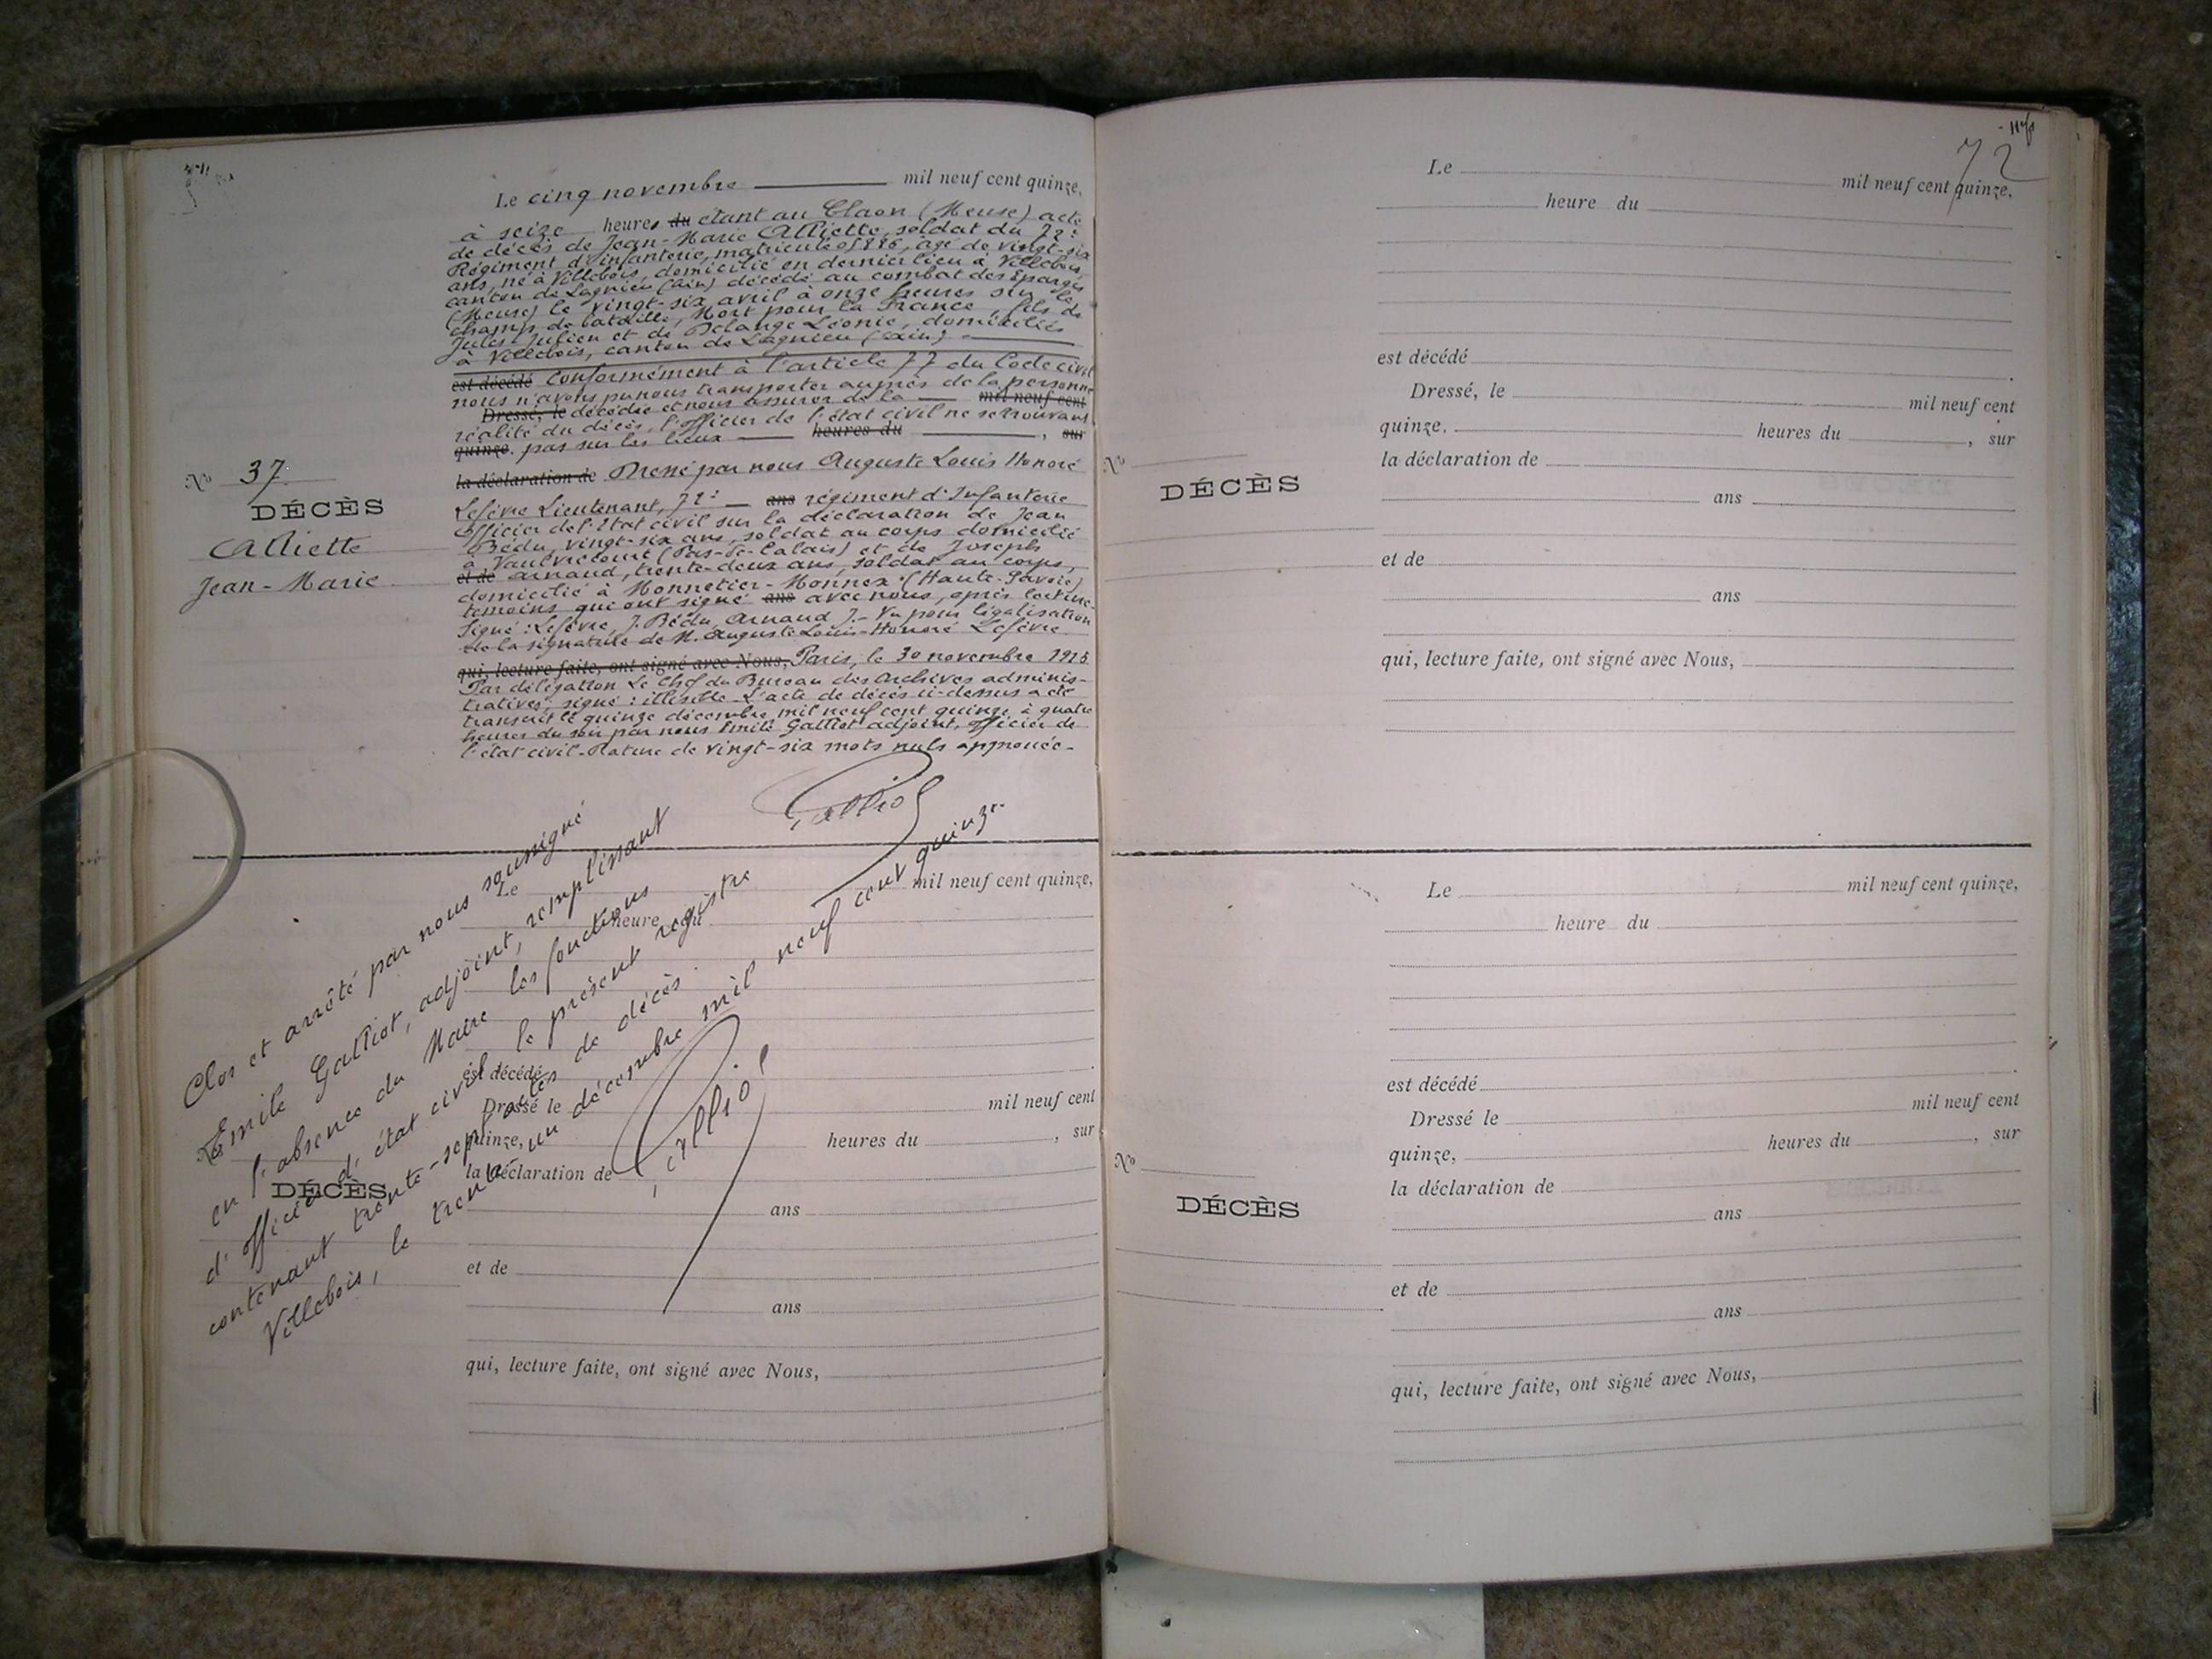 Le cinq novembre mil neuf cent quinze,
à seize heures du étant au Claon (Meuse) acte
de décès de Jean-Marie Alliette, soldat du 72e
Régiment d'infanterie, matricule 05886, âgé de vingt-six
ans, né à Villebois, domicilié en dernier lieu à Villebois,
canton de Lagnieu (Ain) décédé au combat des Eparges
(Meuse) le vingt-six avril à onze heures sur le
champ de bataille, Mort pour la France, fils de
Jules Julien et de Delange Léonie, domiciliés
à Villebois, canton de Lagnieu (Ain)
est décédé Conformément à l'article 77 du Code civil
nous n'avons pu nous transporter auprès de la personne
Dressé, le décédée et nous assurer de la mil neuf cent
réalité du décès, l'officier de l'état civil ne se trouvant
quinze. pas sur les lieux heures du , sur
la déclaration de Dressé par nous Auguste Louis Honoré
Lefèvre Lieutenant, 72e ans régiment d'Infanterie
Officier de l'Etat civil sur la déclaration de Jean
Bédu, vingt-six ans, soldat au corps domicilié
à Vaulvrecourt (Pas-de-Calais) et de Joseph
et de Arnaud, trente-deux ans, soldat au corps,
domicilié à Monnetier-Mornex (Haute-Savoie)
témoins qui ont signé ans avec nous, après lecture.
Signé : Lefèvre, J. Bédu, Arnaud J. - Vu pour légalisation
de la signature de M. Auguste Louis-Honoré Lefèvre
qui, lecture faite, ont signé avec Nous, Paris, le 30 novembre 1915
Par délégation Le Chef du Bureau des Archives adminis-
tratives, signé : illisible L'acte de décès ci-dessus a été
transcrit le quinze décembre mil neuf cent quinze à quatre
heures du soir par nous Emile Galliot adjoint, officier de
l'état civil - Rature de vingt-six mots nuls approuvée -
Galliot
No 37
DÉCÈS
Alliette
Jean-Marie
Le mil neuf cent quinze,
heure du
est décédé
Dressé le mil neuf cent
quinze, heures du , sur
la déclaration de
ans
et de
ans
qui, lecture faite, ont signé avec Nous,
No
DÉCÈS
Clos et arrêté par nous soussigné
Emile Galliot, adjoint, remplissant
en l'absence du Maire les fonctions
d'officier d'état civil le présent registre
contenant trente-sept actes de décès.
Villebois, le trente-un décembre mil neuf cent quinze
Galliot
72
Le mil neuf cent quinze,
heure du
est décédé
Dressé, le mil neuf cent
quinze. heures du , sur
la déclaration de
ans
et de
ans
qui, lecture faite, ont signé avec Nous,
No
DÉCÈS
Le mil neuf cent quinze,
heure du
est décédé
Dressé le mil neuf cent
quinze, heures du , sur
la déclaration de
ans
et de
ans
qui, lecture faite, ont signé avec Nous,
No
DÉCÈS